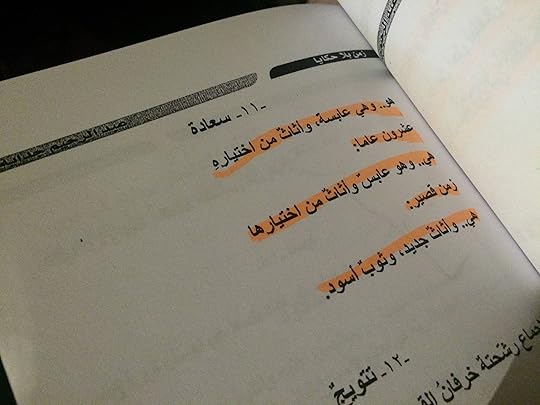 زمن بلا حكايا
-١١- سعادة
هو.. وهي عابسة، وأثاث من اختياره
عشرون عاما:
هي.. وهو عابسٌ وأثاثٌ من اختيارها
زمن قصير:
هي.. وأثاث جديد، وثوبٌ أسود.
-١٢- تتويجٌ
رشحتهُ خرفانُ